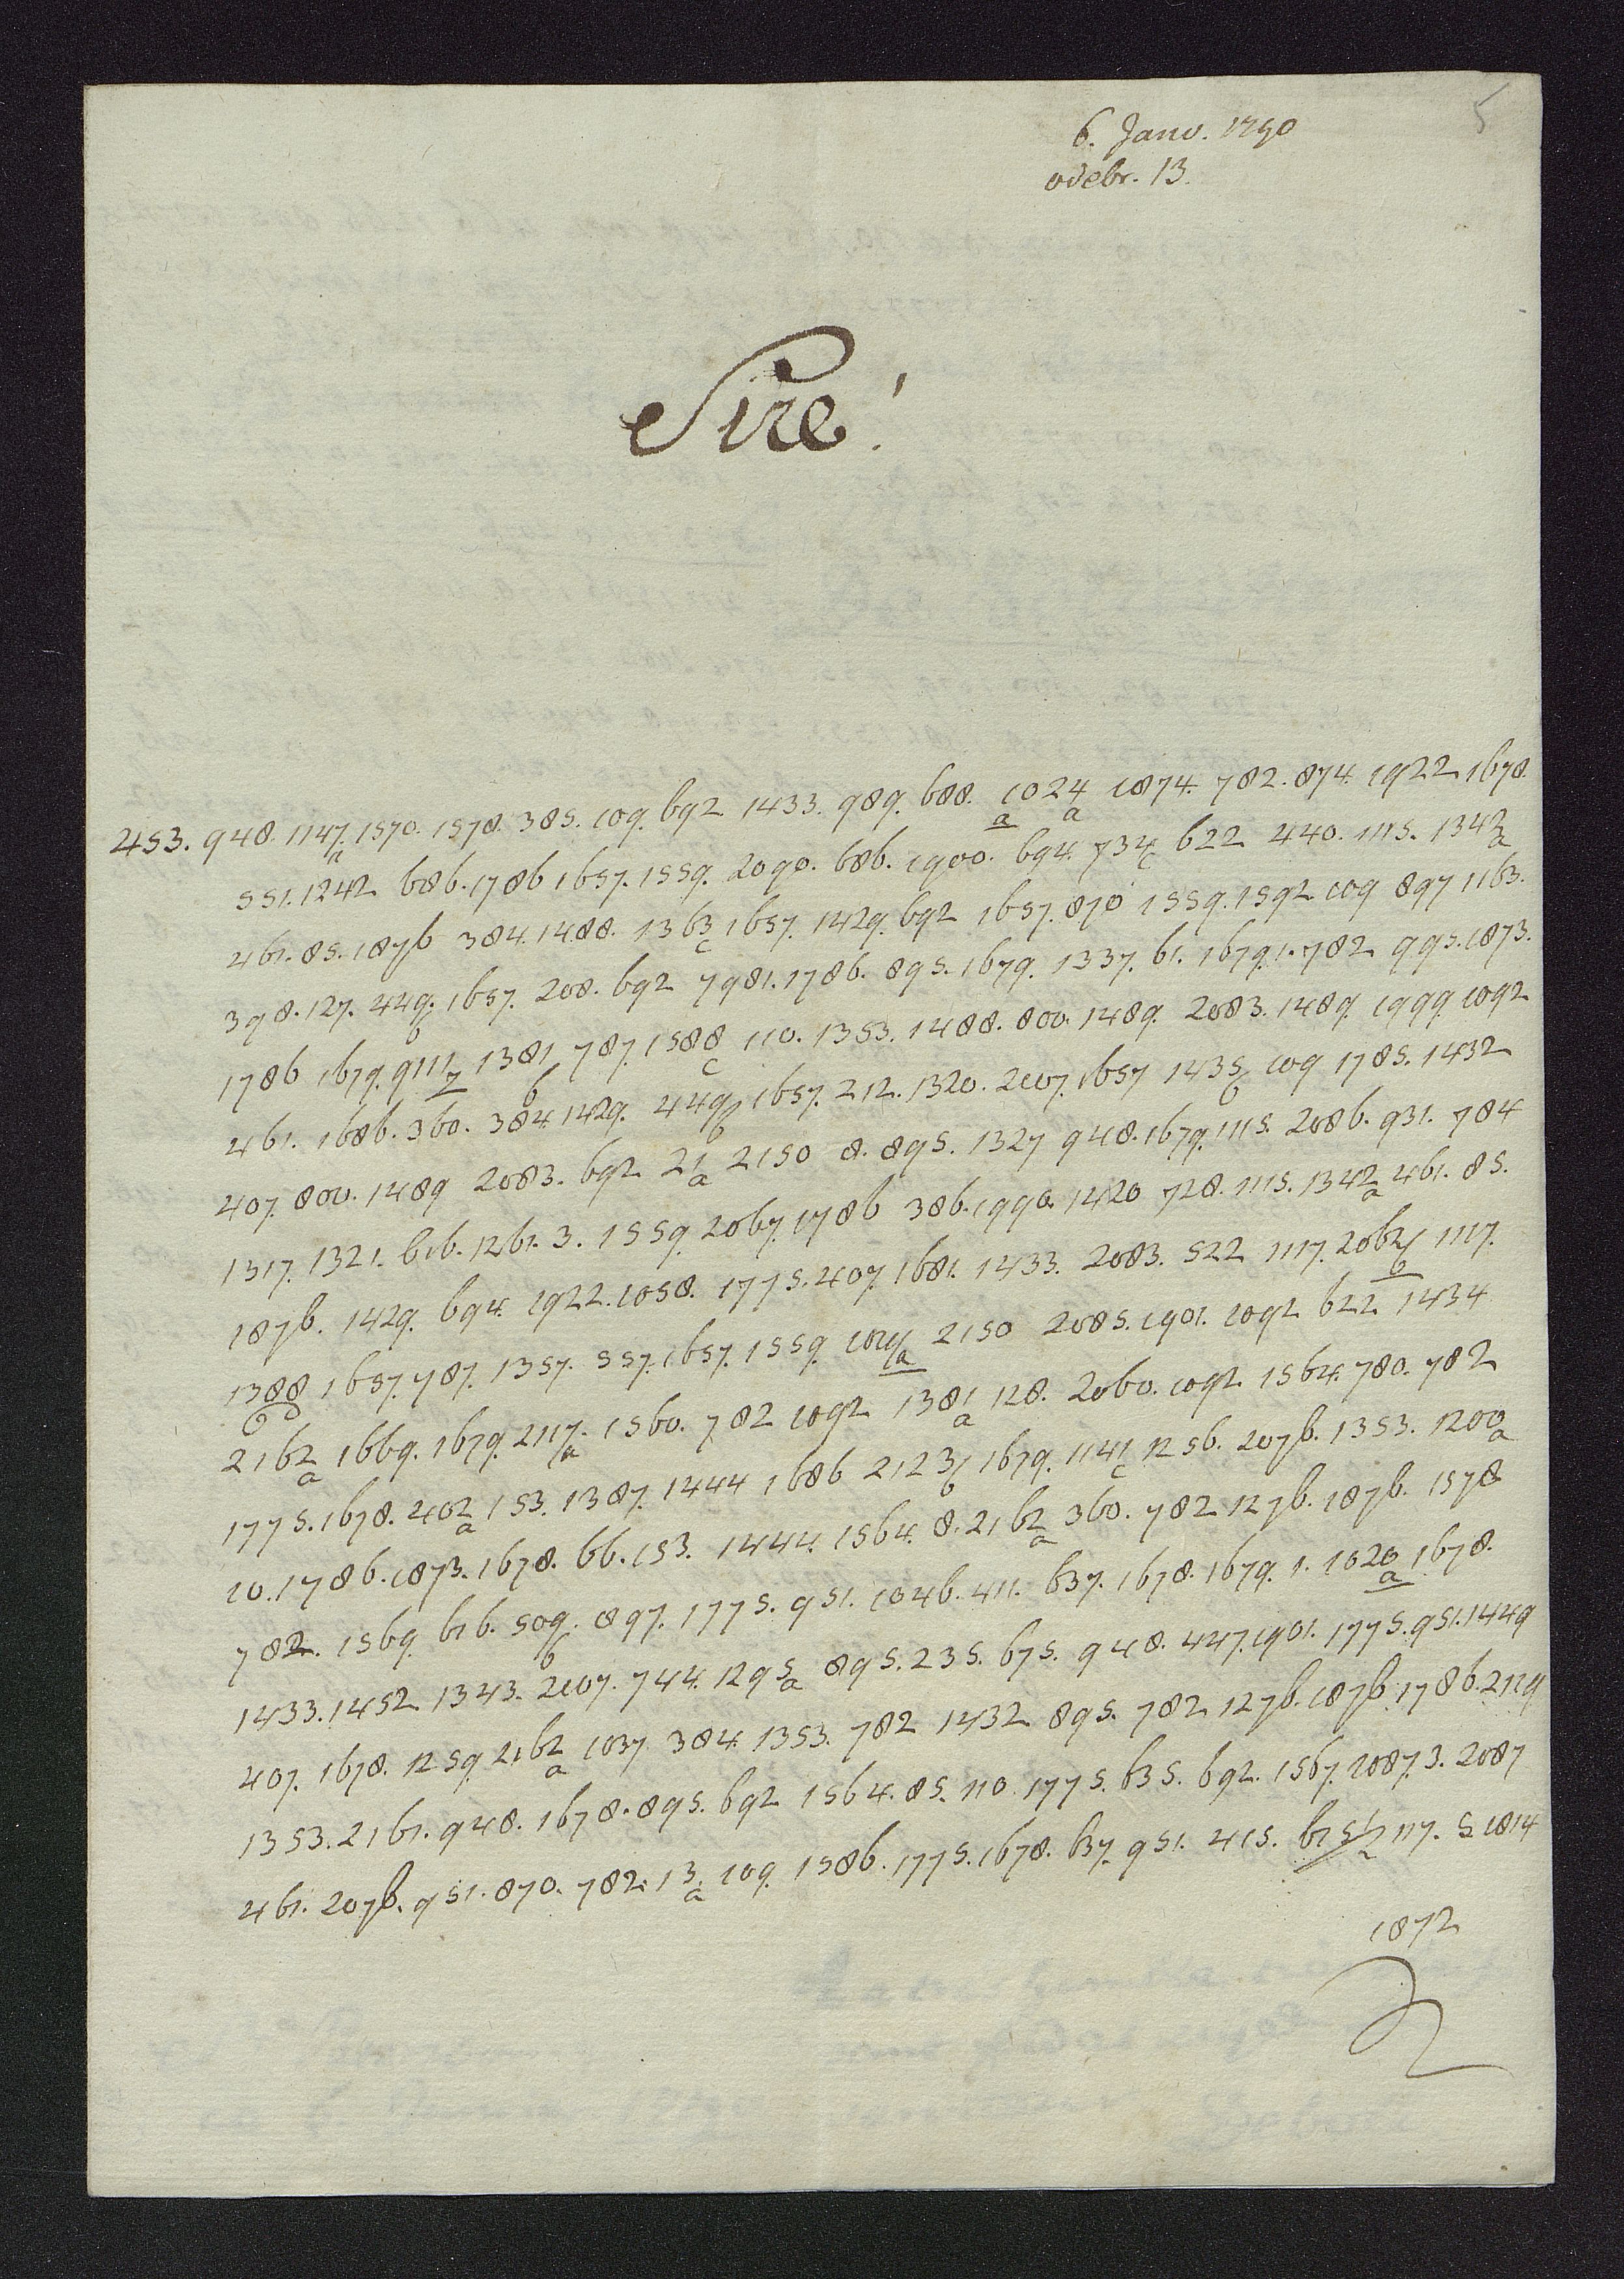 5
6. Janv. 1790
odebr. 13.
Sire!
453. 948. 1147. 1570. 1578. 385. 109. 692 1433. 989. 688. 1024 1874. 782. 874. 1922 1678.
a a a
551. 1242 686. 1786 1657. 1559. 2090. 686. 1900. 694. 734 622 440. 1115. 1342
c a
461. 85. 1876 384. 1488. 1363 1657. 1429. 692 1657. 870 1559. 1592 109 897 1163.
c
398. 127. 449. 1657. 208. 692 7981. 1786. 895. 1679. 1337. 61. 1679. 1. 782 995. 1873.
b
1786 1679. 9111 1381 787. 1588 110. 1353. 1488. 800. 1489. 2083. 1489. 1999. 1092
7 b c
461. 1686. 360. 384. 1429. 449 1657. 212. 1320. 2007. 1657 1435 109 1785. 1432
b b
407. 800. 1489 2083. 692 21 2150 8. 895. 1327 948. 1679. 1115. 2086. 931. 784
a
1317. 1321. 616. 1261. 3. 1559. 2067. 1786 386. 1990. 1420 728. 1115. 1342 461. 85.
a
1876. 1429. 694. 1922. 1058. 1775. 407. 1681. 1433. 2083. 522 1117. 2062 1117.
b
1388 1657. 787. 1357. 557. 1657. 1559 2150 2085. 1901. 1092 622 1434
a
2162 1669. 1679. 2117. 1560. 782 1092 1381 128. 2060. 1092. 1564. 780. 782
a a a
1775. 1678. 402 153. 1387. 1444 1686 2123 1679. 1141 1256. 2076. 1353. 1200
a b c a
10. 1786. 1873. 1678. 66. 153. 1444. 1564. 8. 2162 360. 782 1276. 1876. 1578
a
782. 1569 616. 509. 897. 1775. 951. 1046. 411. 637. 1678. 1679. 1. 1020 1678.
b a
1433. 1452 1343. 2007. 744. 1295 895. 235. 675. 948. 447. 1901. 1775. 951. 1449
a
407. 1678. 1259. 2162 1037 384. 1353. 782 1432 895. 782 1276. 1876. 1786. 2129
a
1353. 2161. 948. 1678. 895. 692 1564. 85. 110. 1775. 635. 692. 1567. 2087. 3. 2087
461. 2076. 951. 870. 782. 13. 109. 1586. 1775. 1678. 637. 951. 415. 117. 5 1814
a
1872